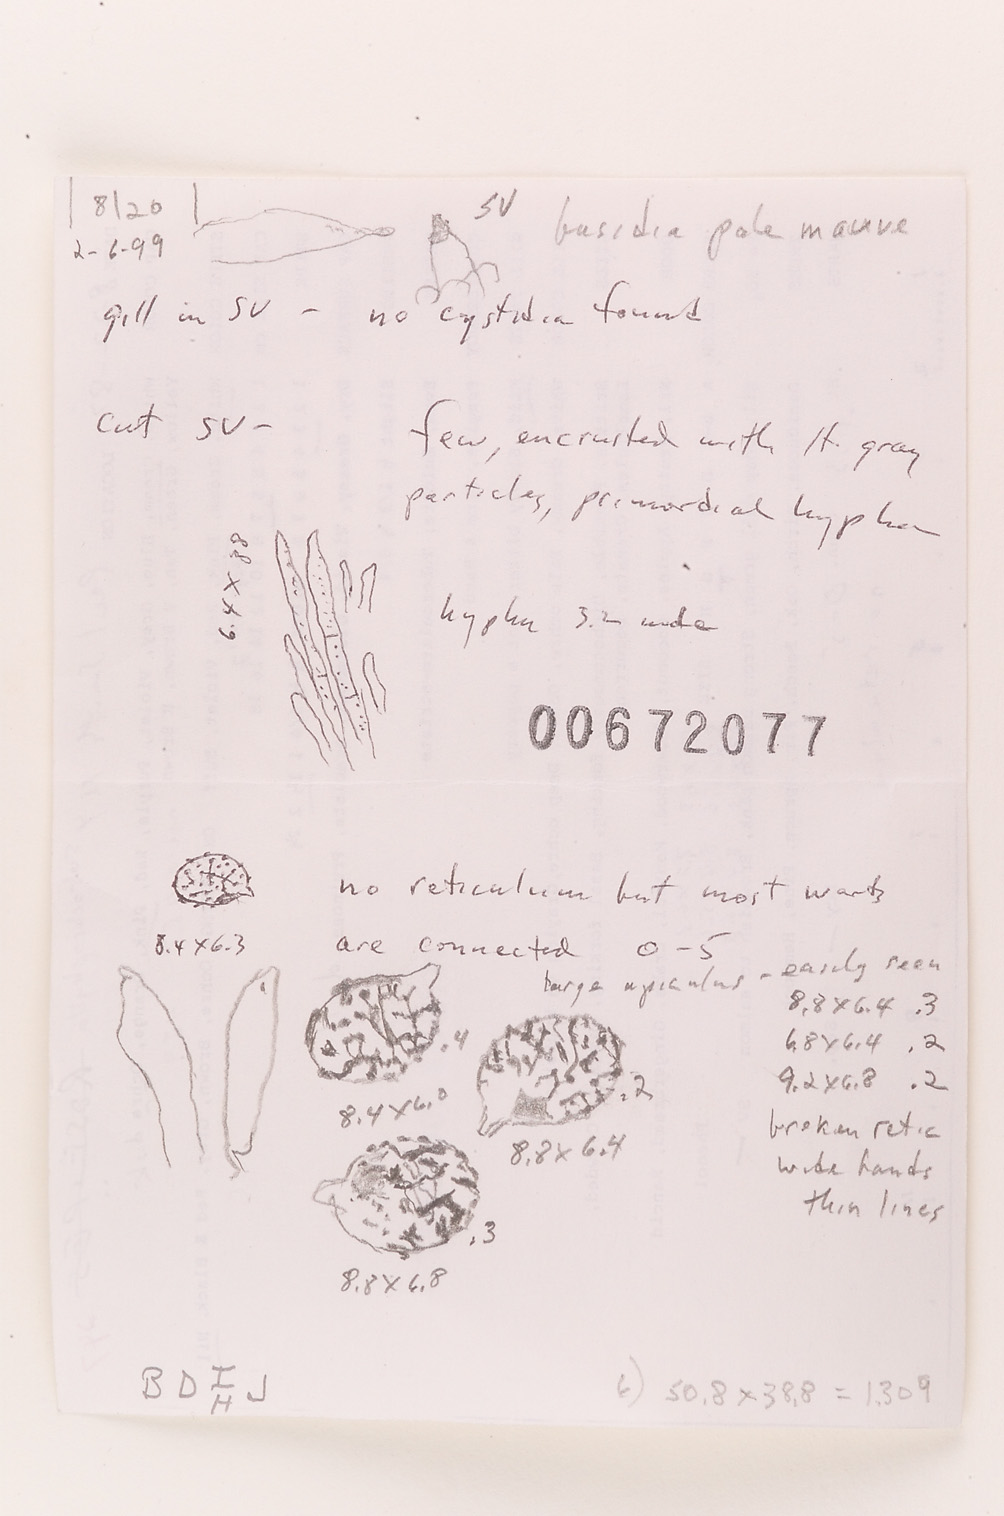 8/20
2-6-99
SV
basidia pale mauve
gill in SV - no cystidia found
cut SV-
few, encrusted with lt. gray
particles, primordial hypha
6.4 X 88
hypha 3.2 wide
00672077
no reticulum but most warts
are connected 0-5
8.4 X 6.3
large apiculus - easily seen
8.8 X 6.4 .3
6.8 X 6.4 .2
9.2 X 6.8 .2
.4
8.4 X 6.0
.2
8.8 X 6.4
broken retic
wide bands
thin lines
.3
8.8 X 6.8
B D I J
H
6) 50.8 X 38.8 = 1.309